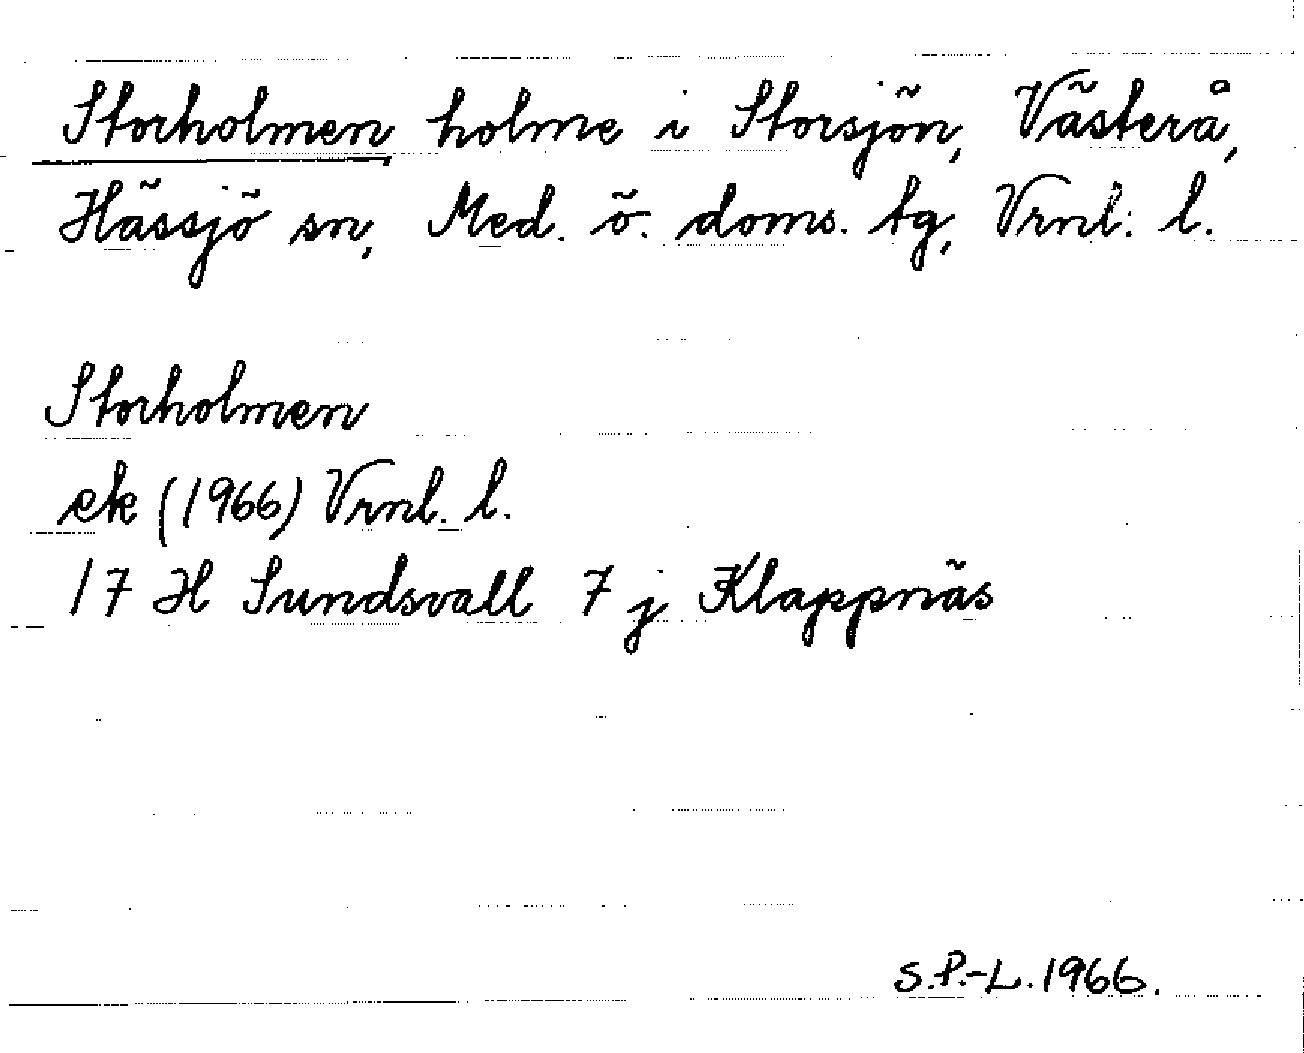 Storholmen holme i Storsjön, Västerå,
Hässjö sn, Med. ö. doms. tg, Vrnl. l.
Storholmen
ek (1966) Vrnl. l.
17 H Sundsvall 7 j Klappnäs
S.P.-L. 1966.